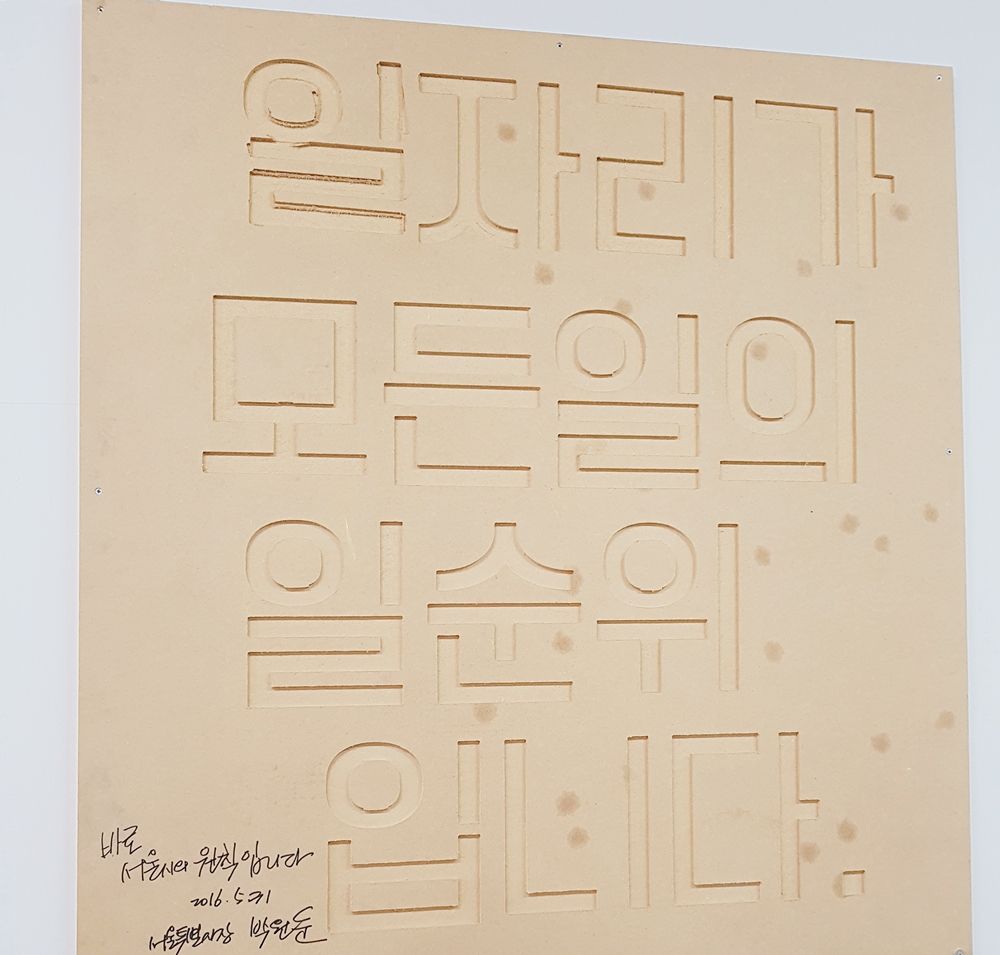 일자리가
모든일의
일순위
입니다.
바로
서울시의 원칙입니다
2016. 5. 31
서울특별시장 박원순